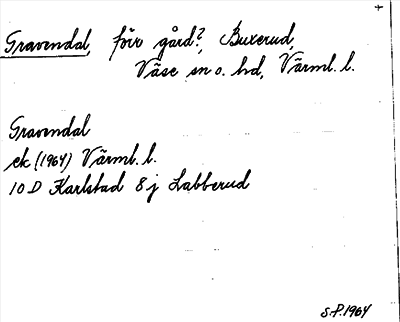 Gravendal, förr gård?, Buxerud,
Väse sn o. hd, Värml. l.
Gravendal
ek (1964) Värml. l.
10 D Karlstad 8 j Labberud
S.P. 1964